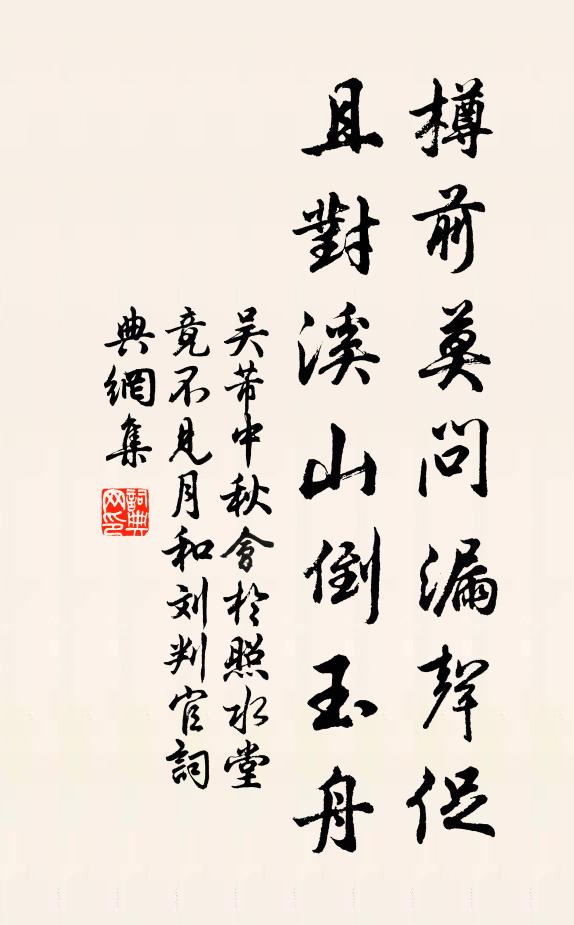 樽前莫問漏聲促
且對溪山倒玉舟
吴芾中秋會於照水堂
竟不見月和刘判官詞
典網集
詞典网印